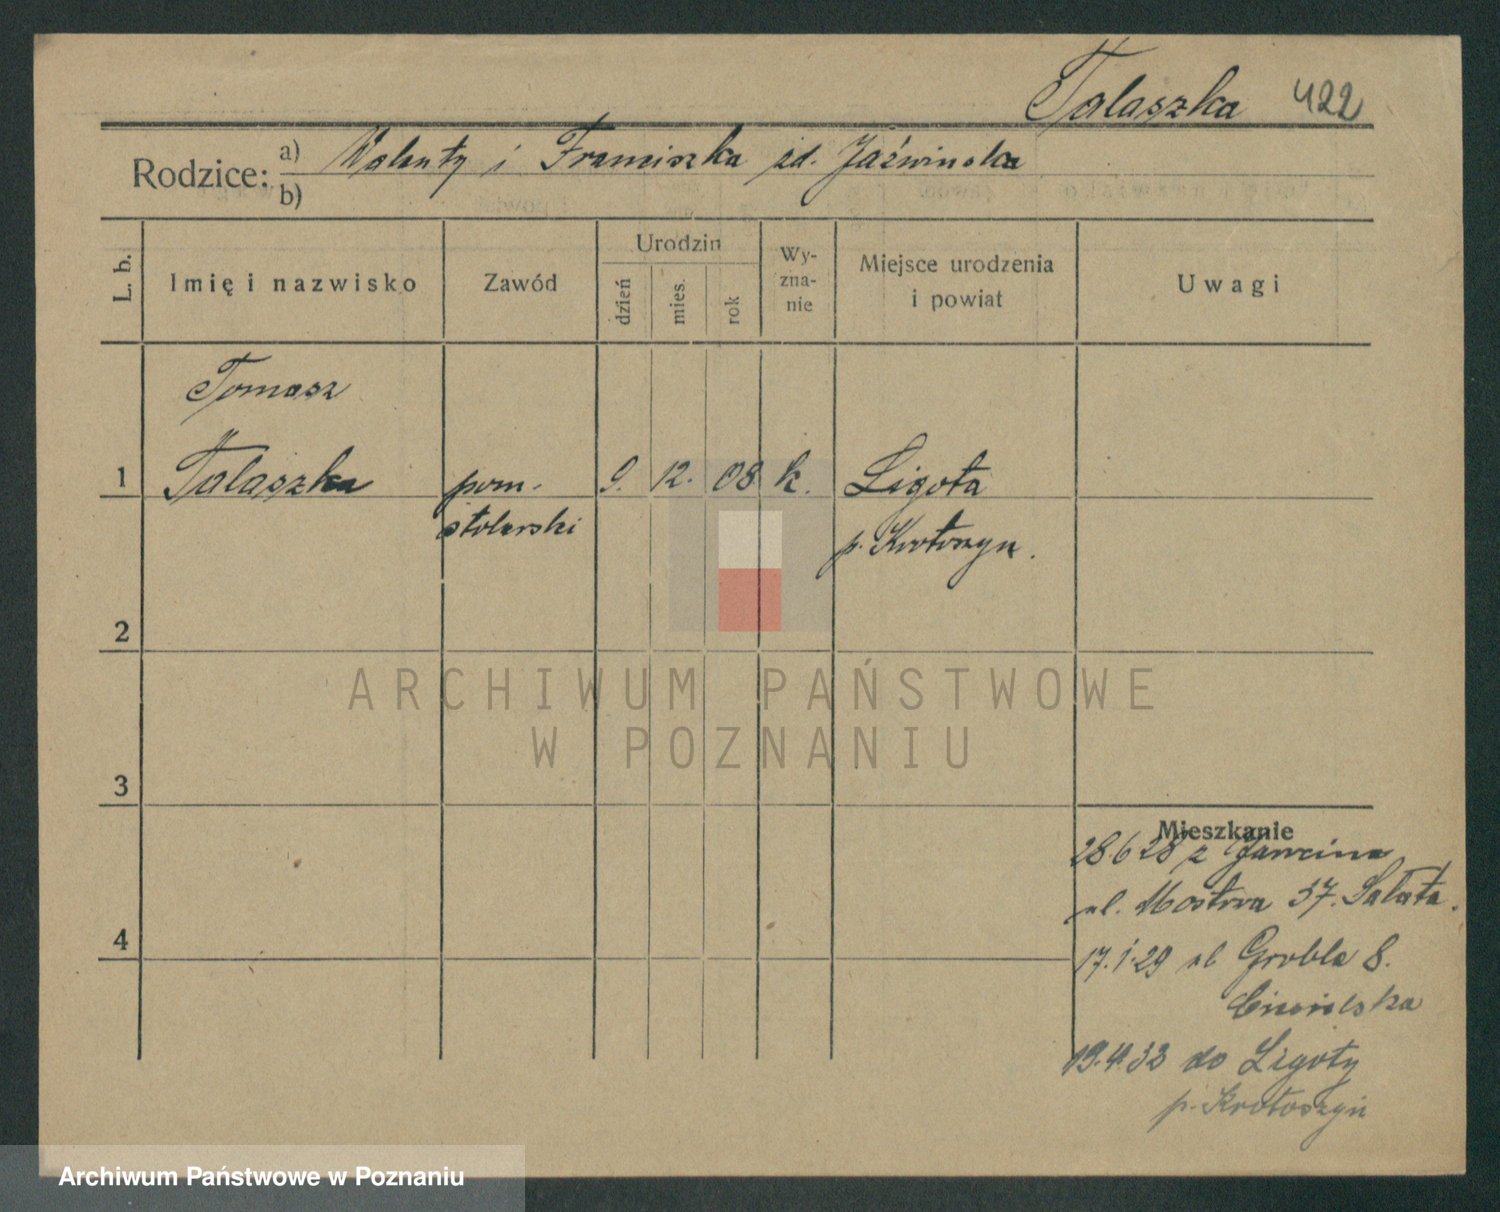 Talaszka 422
Rodzice: a) Walenty i Franciszka zd. Jaźwinska
b)
L. b. Imię i nazwisko Zawód Urodzin dzień mies. rok Wy-zna-nie Miejsce urodzenia i powiat Uwagi
Tomasz
1 Talaszka pom. 9. 12. 08 k. Ligota
stolarski p. Krotoszyn.
2
3
4
Mieszkanie
28 6 28 z Jarocina
ul. Mostowa 37. Sałata.
17.1.29 ul Grobla 8.
19.4.33 do Ligoty
p. Krotoszyn
ARCHIWUM PAŃSTWOWE
W POZNANIU
Archiwum Państwowe w Poznaniu